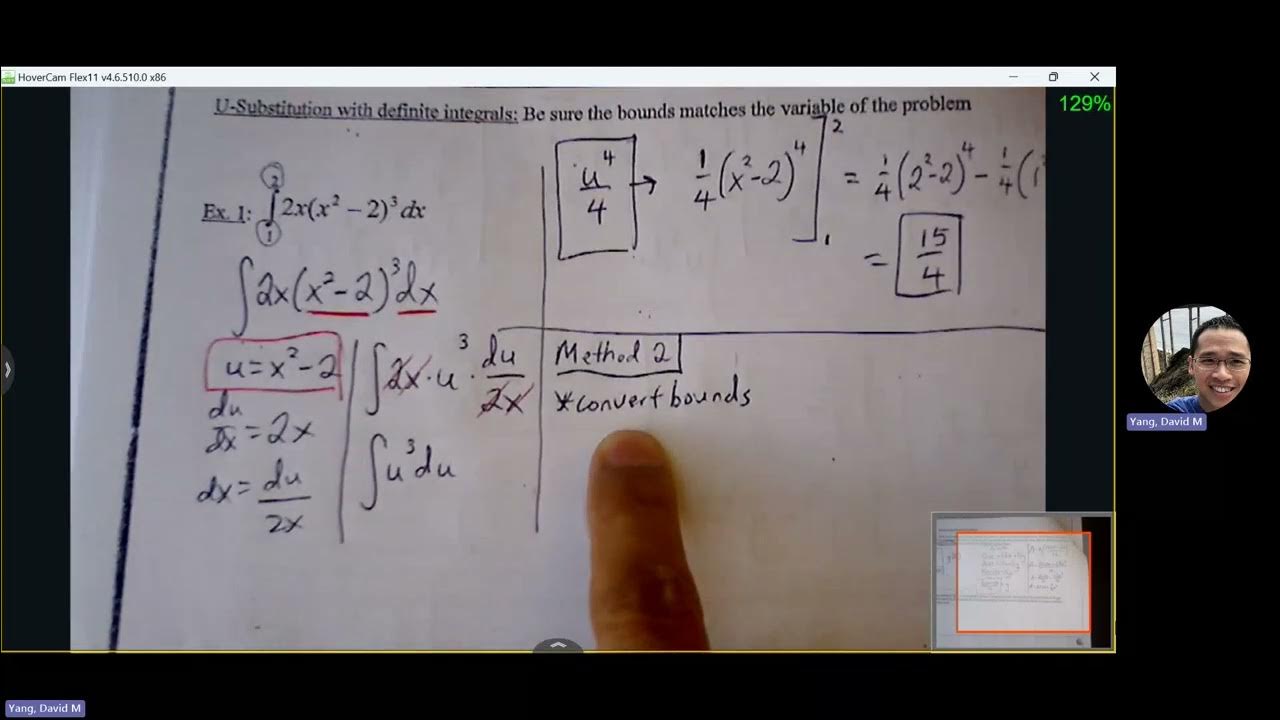 HoverCam Flex11 v4.6.510.0 x86
129%
U-Substitution with definite integrals: Be sure the bounds matches the variable of the problem
Ex. 1: ∫₁² 2x(x² − 2)³ dx
∫2x(x²-2)³dx
u=x²-2
du/dx = 2x
dx = du/2x
∫2x·u³·du/2x
∫u³du
u⁴/4 → 1/4(x²-2)⁴]₁² = 1/4(2²-2)⁴ - 1/4(1²
= 15/4
Method 2
*convert bounds
Yang, David M
Yang, David M